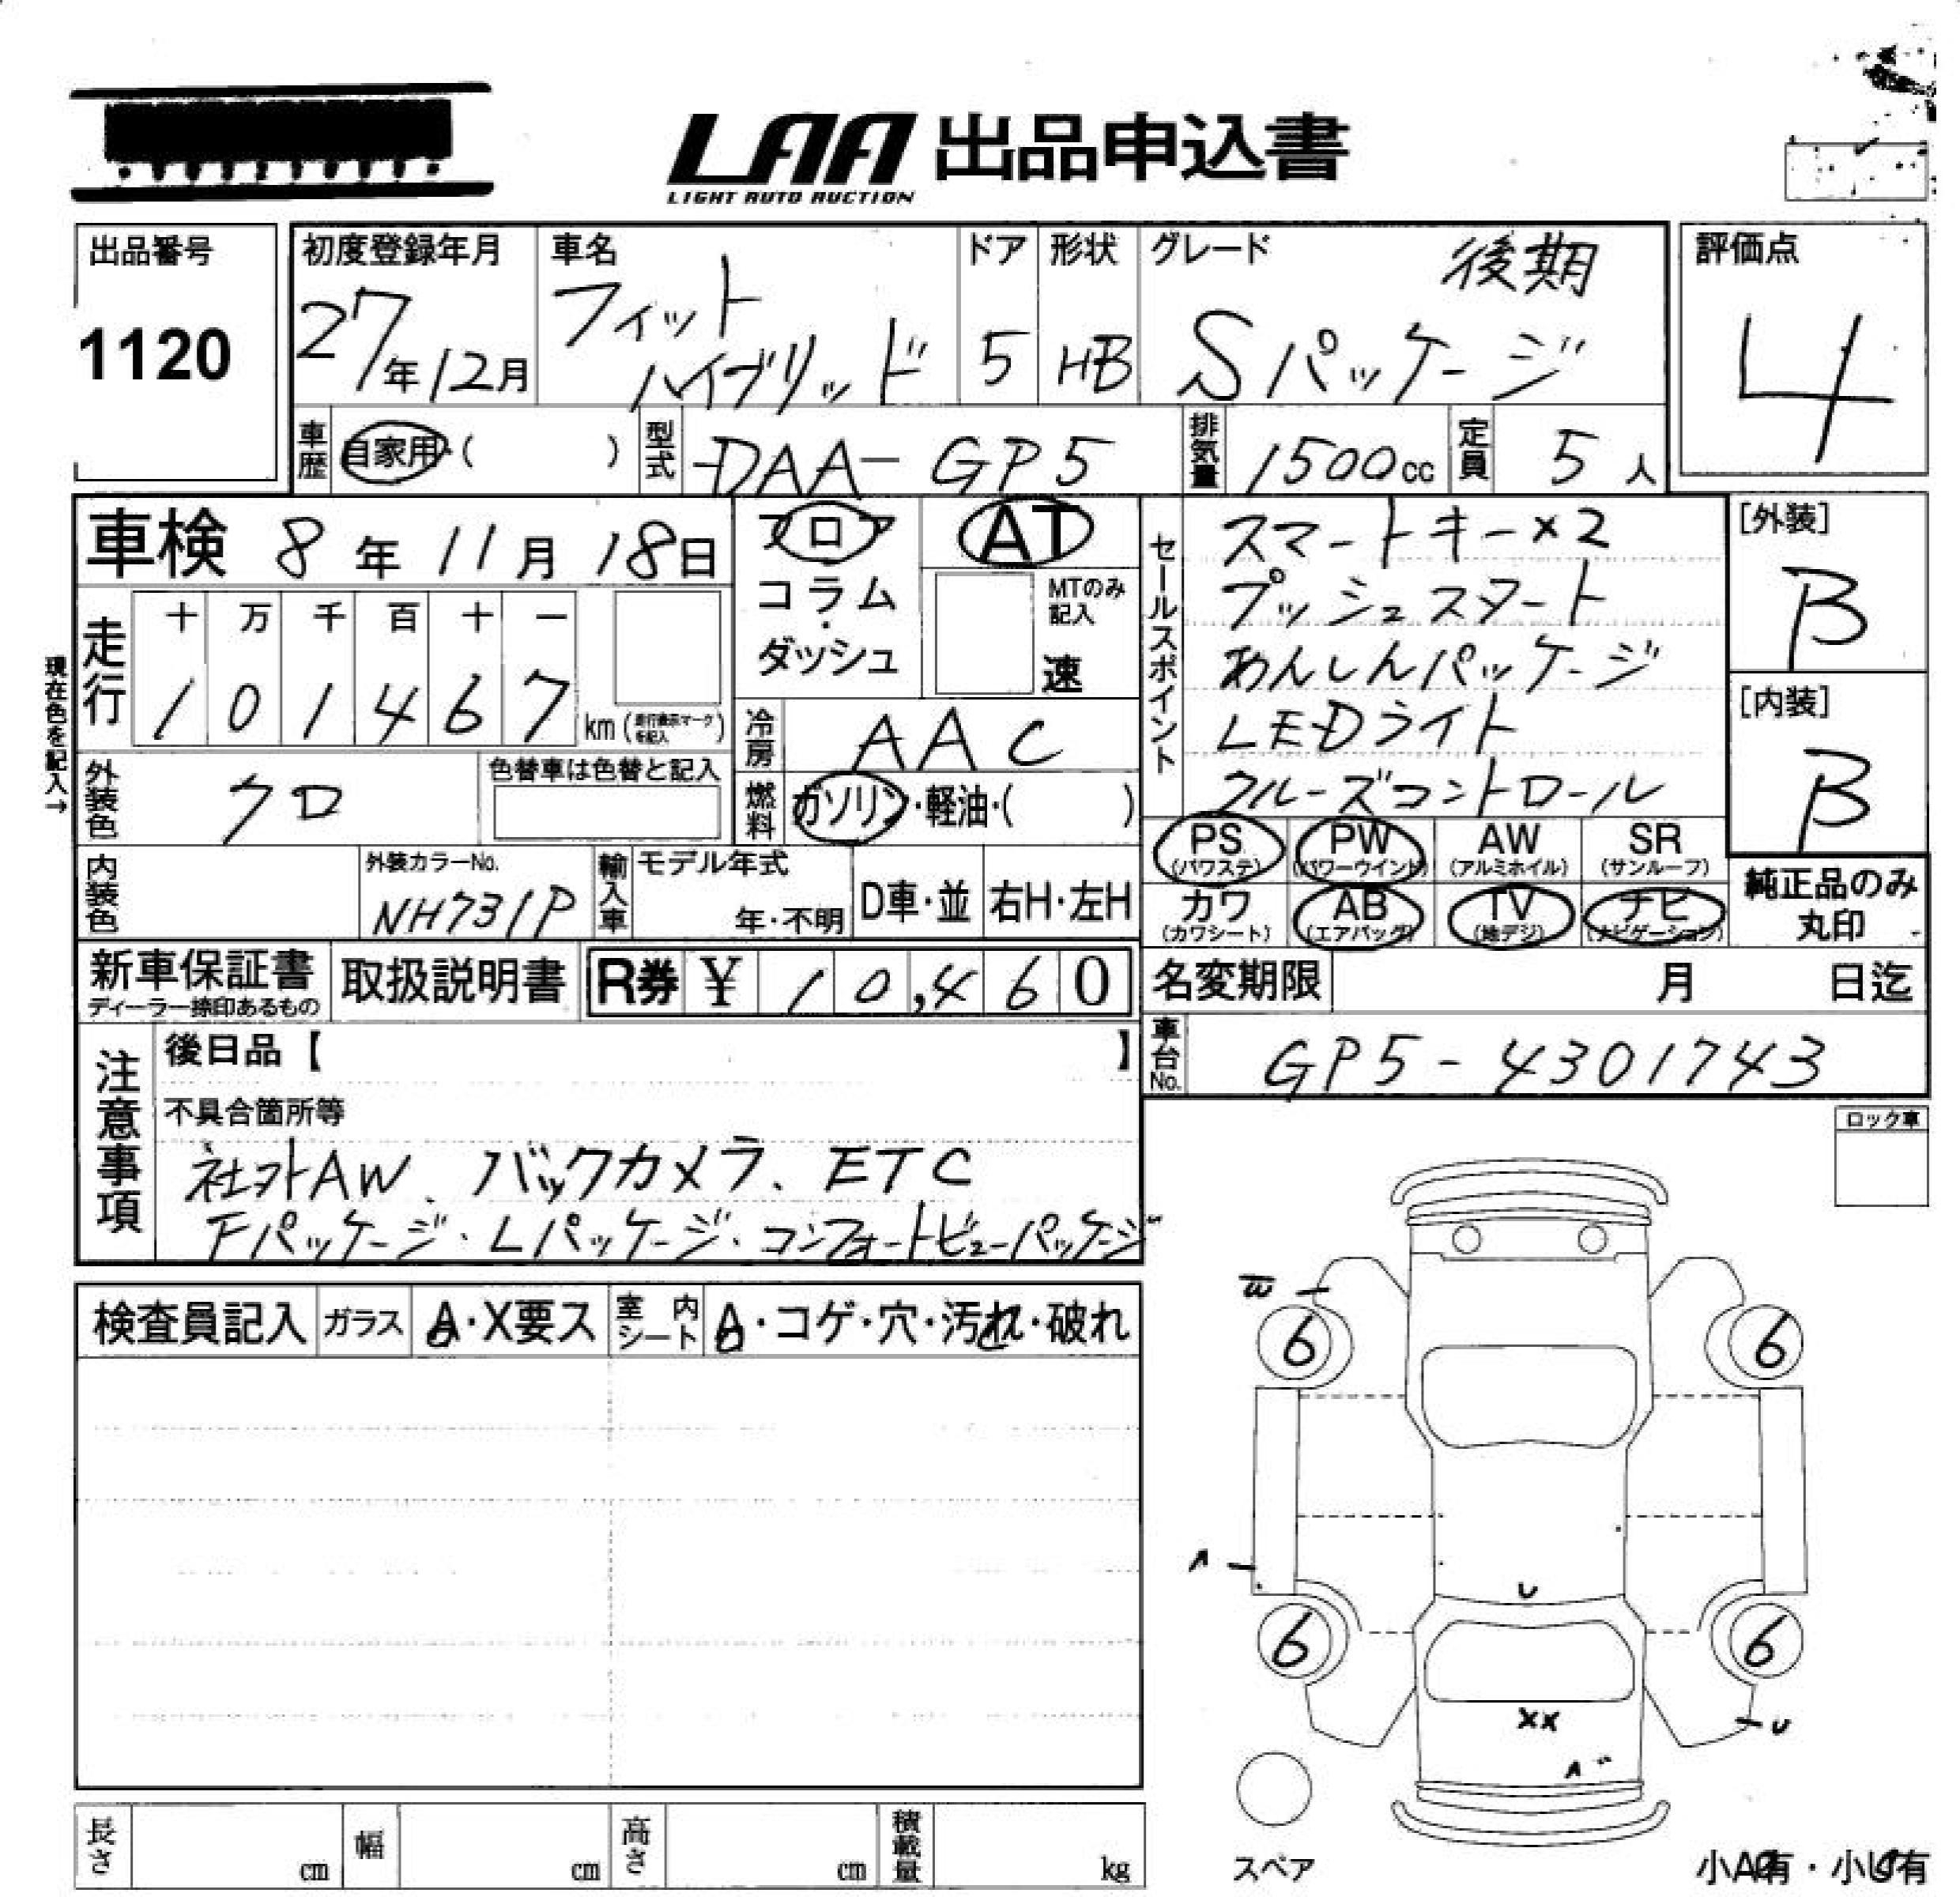 LAA 出品申込書
LIGHT AUTO AUCTION
出品番号
1120
初度登録年月
27年12月
車名
フィット
ハイブリッド
ドア
5
形状
HB
グレード
後期
Sパッケージ
評価点
4
車歴
自家用・( )
型式
DAA-GP5
排気量
1500cc
定員
5人
車検 8年11月18日
フロア
コラム・
ダッシュ
AT
MTのみ
記入
速
セールスポイント
スマートキー×2
プッシュスタート
あんしんパッケージ
LEDライト
クルーズコントロール
[外装]
B
[内装]
B
現在色を記入→
走行
十 万 千 百 十 一
1 0 1 4 6 7 km (走行表示マークを記入)
冷房
AAC
外装色
クロ
色替車は色替と記入
燃料
ガソリン・軽油・( )
PS
(パワステ)
PW
(パワーウインド)
AW
(アルミホイル)
SR
(サンルーフ)
カワ
(カワシート)
AB
(エアバッグ)
TV
(地デジ)
ナビ
(ナビゲーション)
純正品のみ
丸印
内装色
外装カラーNo.
NH731P
輸入車
モデル年式
年・不明
D車・並
右H・左H
新車保証書
ディーラー捺印あるもの
取扱説明書
R券 ¥ 10,460
名変期限 月 日迄
車台No.
GP5-4301743
注意事項
後日品【 】
不具合箇所等
社外AW、バックカメラ、ETC
Fパッケージ・Lパッケージ・コンフォートビューパッケージ
ロック車
検査員記入
ガラス
A・X要ス
室内シート
A・コゲ・穴・汚れ・破れ
W
6
6
A
U
6
6
XX
U
A
スペア
小A有・小U有
長さ cm
幅 cm
高さ cm
積載量 kg